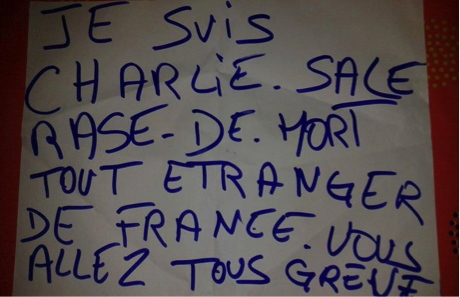 JE SUiS
CHARLiE. SALE
RASE-DE. MORT
TOUT ETRANGER
DE FRANCE. VOUS
ALLEZ TOUS GREVE